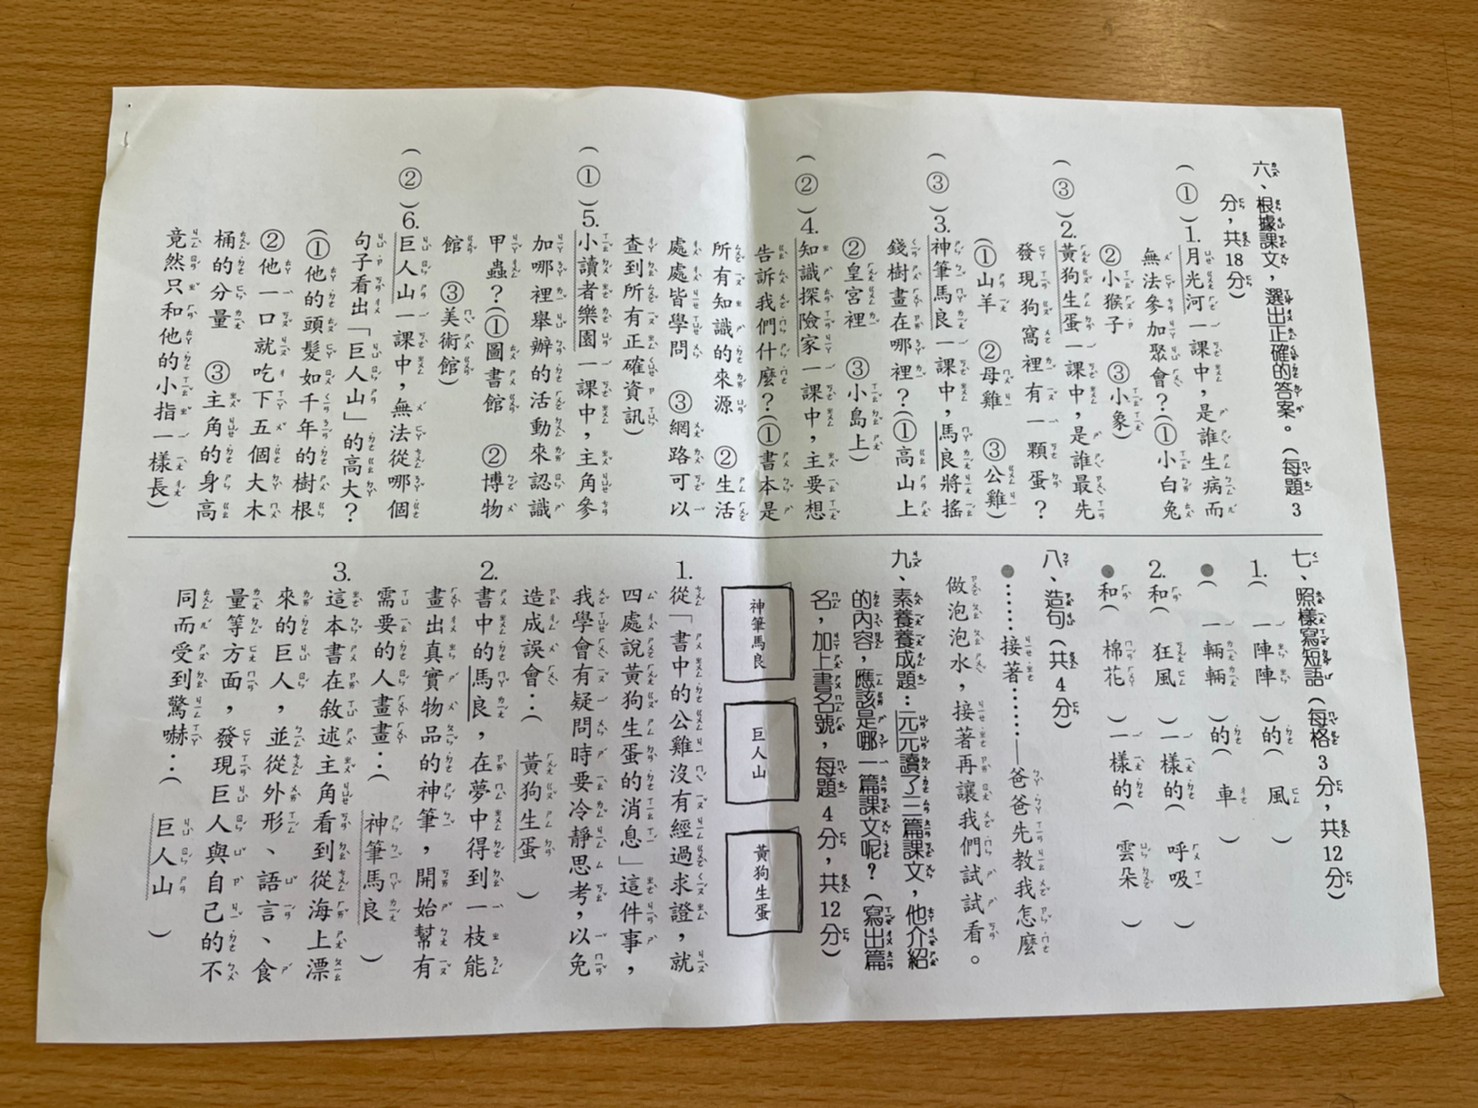 六、根據課文，選出正確的答案。（每題3
分，共18分）
（①）1.月光河一課中，是誰生病而
無法參加聚會？(①小白兔
②小猴子　③小象）
（③）2.黃狗生蛋一課中，是誰最先
發現狗窩裡有一顆蛋？
(①山羊　②母雞　③公雞)
（③）3.神筆馬良一課中，馬良將搖
錢樹畫在哪裡？(①高山上
②皇宮裡　③小島上）
（②）4.知識探險家一課中，主要想
告訴我們什麼？(①書本是
所有知識的來源　②生活
處處皆學問　③網路可以
查到所有正確資訊）
（①）5.小讀者樂園一課中，主角參
加哪裡舉辦的活動來認識
甲蟲？(①圖書館　②博物
館　③美術館）
（②）6.巨人山一課中，無法從哪個
句子看出「巨人山」的高大？
(①他的頭髮如千年的樹根
②他一口就吃下五個大木
桶的分量　③主角的身高
竟然只和他的小指一樣長）
七、照樣寫短語（每格3分，共12分）
1.（一陣陣）的（風）
●（一輛輛）的（車）
2.和（狂風）一樣的（呼吸）
●和（棉花）一樣的（雲朵）
八、造句（共4分）
●……接著……──爸爸先教我怎麼
做泡泡水，接著再讓我們試試看。
九、素養養成題：元元讀了三篇課文，他介紹
的內容，應該是哪一篇課文呢？（寫出篇
名，加上書名號，每題4分，共12分）
神筆馬良
巨人山
黃狗生蛋
1.從「書中的公雞沒有經過求證，就
四處說黃狗生蛋的消息」這件事，
我學會有疑問時要冷靜思考，以免
造成誤會：（黃狗生蛋）
2.書中的馬良，在夢中得到一枝能
畫出真實物品的神筆，開始幫有
需要的人畫畫：（神筆馬良）
3.這本書在敘述主角看到從海上漂
來的巨人，並從外形、語言、食
量等方面，發現巨人與自己的不
同而受到驚嚇：（巨人山）